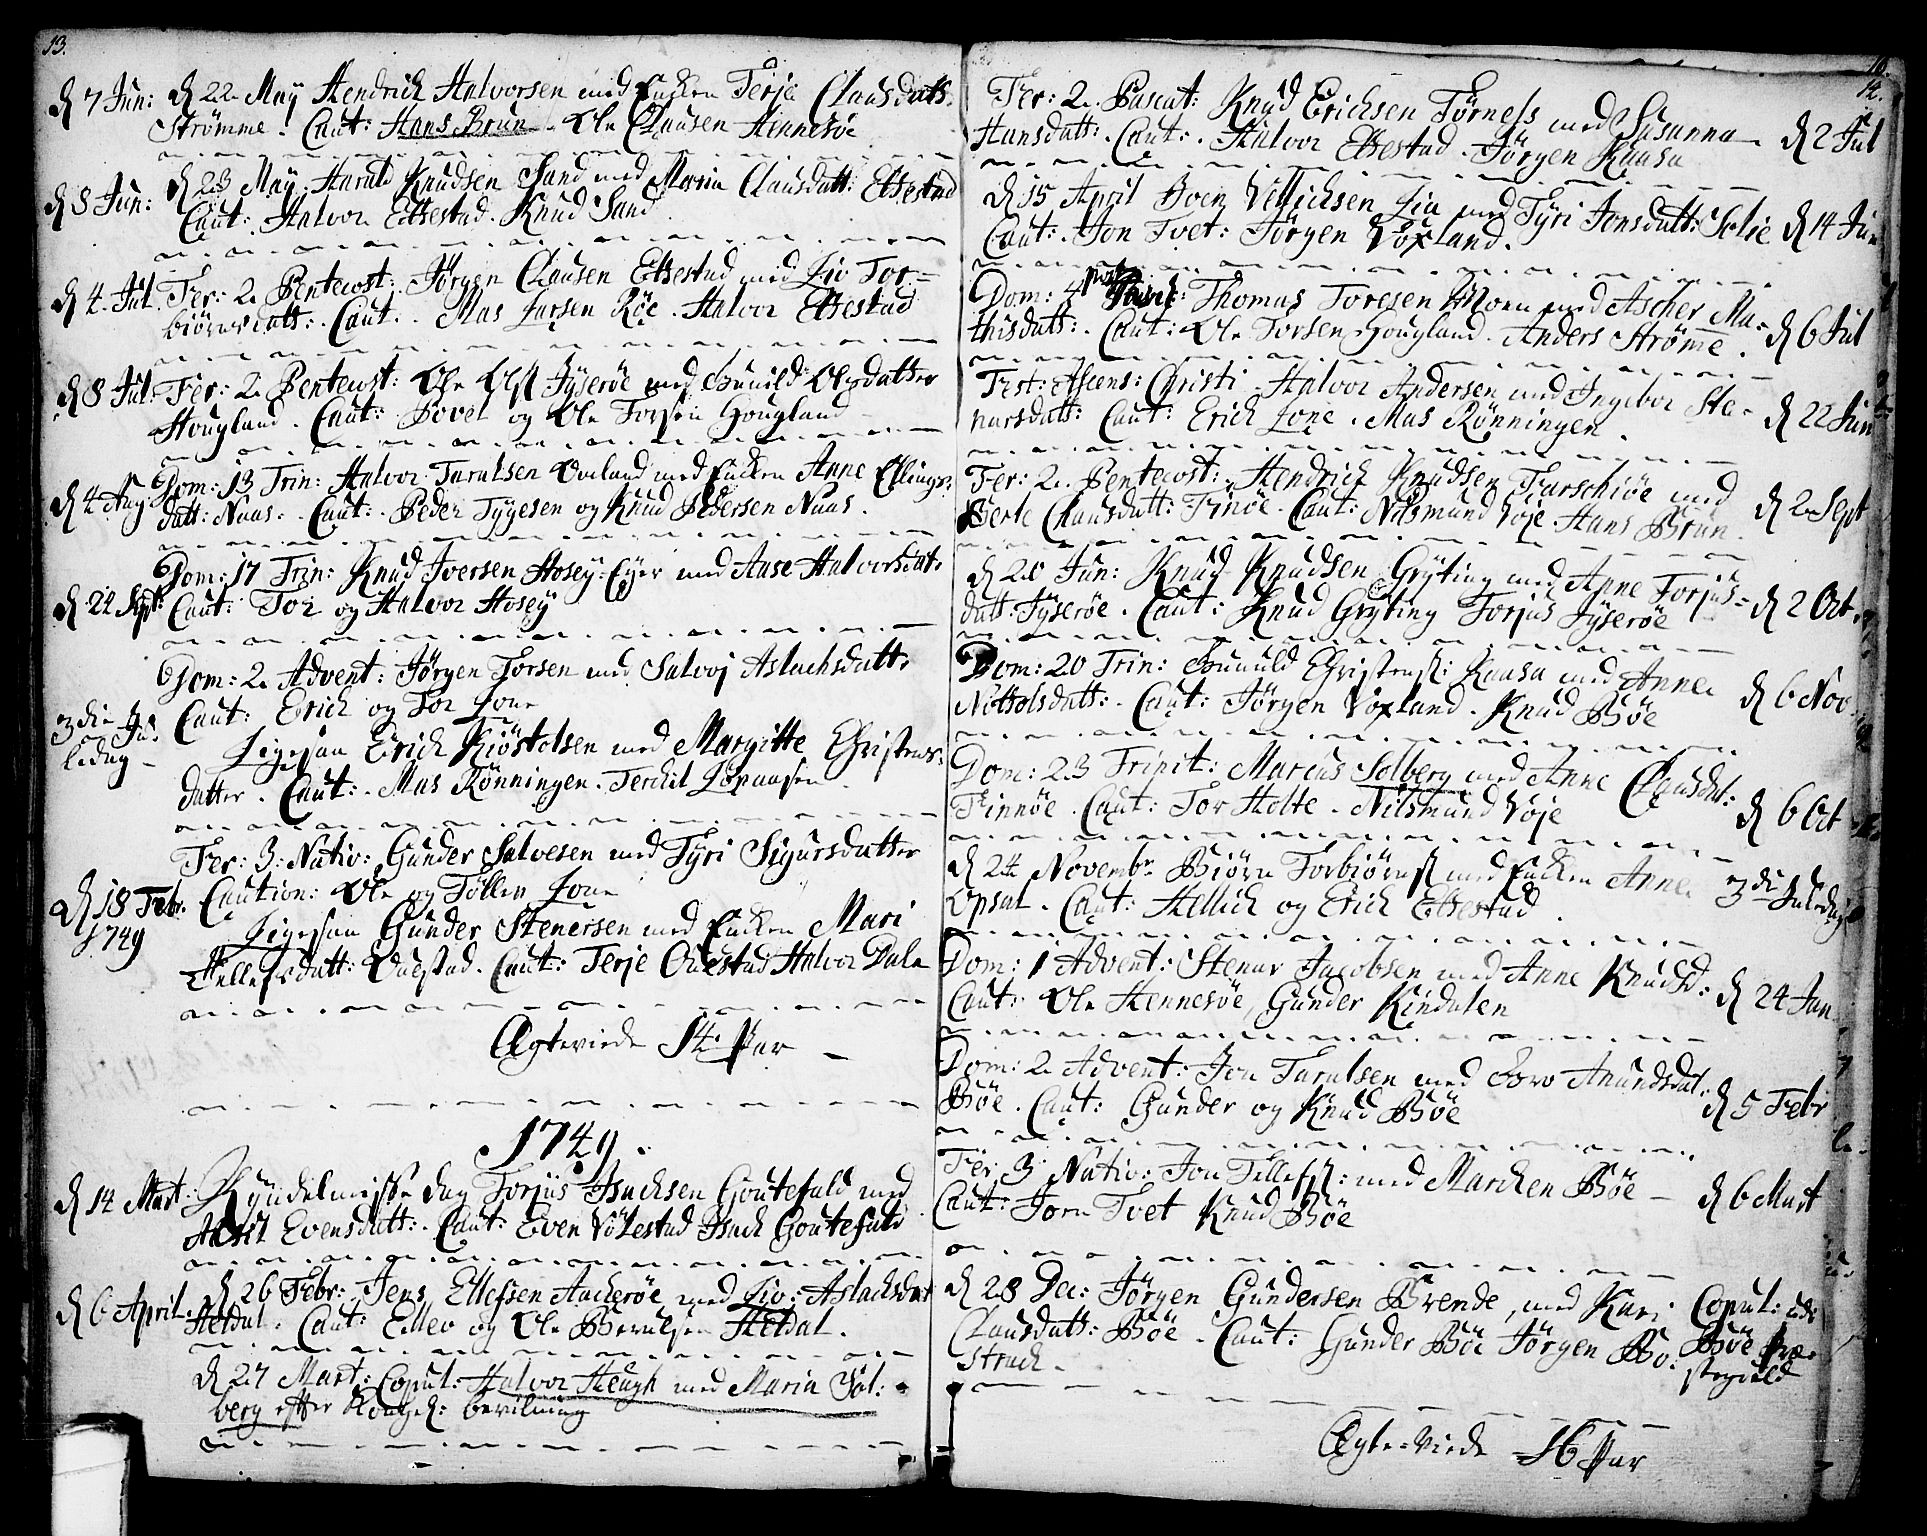 13.
d 7 Jun: d 22 May Hendrich Halvorsen med Encken Terje Clausdatt:
Strømme. Caut: Hans Brun. Ole Clausen Hennesøe
d 8 Jun: d 23 May. Harald Knudsen Sand med Maria Clausdatt: Ettestad
Caut: Halvor Ettestad. Knud Sand
d 4. Jul. Fer: 2. Pentecost: Jørgen Clausen Ettestad med Liv Tor=
biørnsdatt: Caut: Mas Larsen Røe. Halvor Ettestad
d 8 Jul: Fer: 2. Pentecost: Ole Olss Jyserøe med Gunild Olsdatter
Hougland. Caut: Povel og Ole Torsen Hougland
d 4 Aug Dom: 13 Trin: Halvor Taraldsen Omland med Encken Anne Ellings=
datt: Naas. Caut: Peder Tygesen og Knud Pedersen Naas.
d 24 Sept: Dom: 17 Trin: Knud Iversen Hosey-Eyer med Aase Halvorsdat:
Caut: Tor og Halvor Hosey
Dom: 2. Advent: Jørgen Torsen med Salvoj Aslachsdatt:
3die Ju= Caut: Erich og Tor Lone
ledag - Ligesaa Erich Kiøstolsen med Margitte Christens=
datter. Caut: Mas Rønningen. Terckil
Fer: 3: Nativ: Gunder Salvesen med Tyri Sigursdatter
d 18 Febr. Caution: Ole og Tøllev Lone
1749 Ligesaa Gunder Stenersen med Encken Mari
Tellefsdatt: Ouestad. Caut: Terje Ouestad Halvor Dale
Ægteviede 14 Par
1749.
d 14 Mart: Kyndelmisse dag Torjus Isachsen Goutefald med
Evensdatt: Caut: Even Vølestad Isach Goutefald
d 6 April. d 26 Febr: Jens Ellefsen Aackerøe med Liv: Aslachsdat
Heldal. Caut: Ellev og Ole Heldal.
d 27 Mart: Copul: Halvor Heugh med Maria Sol:
berg efter Kongel: bevilning
14.
Fer: 2. Pascat: Knud Erichsen Tørness med Susanna d 2 Jul
Hansdatt: Caut: Halvor Ettestad. Jørgen Kaasa
d 15 April Boen Vettichsen Lia med Tyri Jonsdatt: Solie d 14 Jun
Caut: Jon Tvet: Jørgen Voxland.
Dom: 4 post Pasch: Thomas Toresen Moen med Ascher Ma=
thisdatt: Caut: Ole Torsen Hougland. Anders Strømme. d 6 Jul
Fest: Ascens: Christi. Halvor Andersen med Ingebor Ste=
narsdatt: Caut: Erich Lone. Mas Rønningen. d 22 Jun
Fer: 2. Pentecost: Hendrich Knudsen Farschiøe med d 2 Sept
Berte Clausdatt: Finøe. Caut: Nilsmund Voje. Hans Brun
d 20 Jun: Knud Knudsen Gryting med Anne Torjus=
datt: Jyserøe. Caut: Knud Gryting Torjus Jyserøe d 2 Oct.
Dom: 20 Trin: Gunuld Christens: Kaasa med Anne
Nottolsdatt: Caut: Jørgen Voxland. Knud Bøe d 6 Nov
Dom: 23 Trinit: Marcus Solberg med Anne Clausdat:
Finnøe. Caut: Tor Holte. Nilsmund Voje d 6 Oct
d 24 Novembr Biørn Torbiørnss med Encken Anne 3die Juledag
Opsal. Caut: Hellich og Erich Ettestad.
Dom: 1 Advent: Stenar Jacobsen med Anne Knudsd:
Caut: Ole Hennesøe, Gunder Kindalen d 24 Jan
Dom: 2. Advent: Jon Taralsen med Goro Anundsdat:
Bøe. Caut: Gunder og Knud Bøe d 5 Febr
Fer: 3 Nativ: Jon Tellefss: med Marchen Bøe - d 6 Mart
Caut: Jorn Tvet Knud Bøe
d 28 Dec: Jørgen Gundersen Brende, med Kari Copul: udi
Clausdatt: Bøe. Caut: Gunder Bøe Jørgen Bo: Bøe Præ=
strach. stegield
Ægte-Viede 16 Par